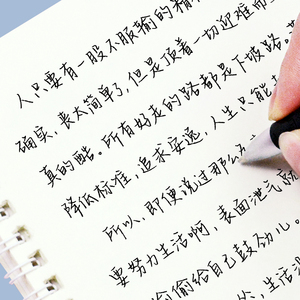 人只要有一股不服输的精
确实,丧太简单了,但是顶着一切迎难而
真的酷。所有好走的路都是下坡路。
降低标准,追求安逸,人生只能
所以,即便说过那么
要努力生活啊,表面泄气
偷偷给自己鼓劲儿。
生活